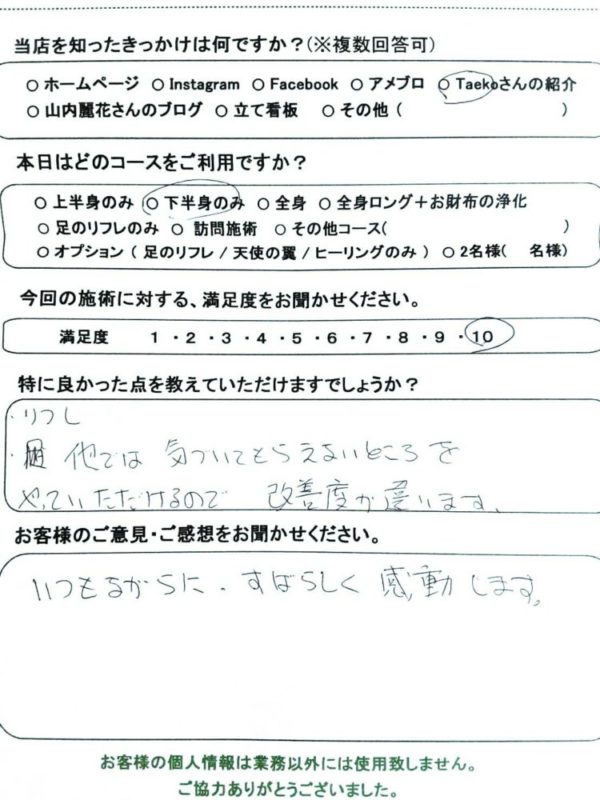 当店を知ったきっかけは何ですか？(※複数回答可)
○ ホームページ ○ Instagram ○ Facebook ○ アメブロ ○ Taekoさんの紹介
○ 山内麗花さんのブログ ○ 立て看板 ○ その他 ( )
本日はどのコースをご利用ですか？
○ 上半身のみ ○ 下半身のみ ○ 全身 ○ 全身ロング＋お財布の浄化
○ 足のリフレのみ ○ 訪問施術 ○ その他コース( )
○ オプション ( 足のリフレ / 天使の翼 / ヒーリングのみ ) ○ 2名様( 名様)
今回の施術に対する、満足度をお聞かせください。
満足度 1 ・ 2 ・ 3 ・ 4 ・ 5 ・ 6 ・ 7 ・ 8 ・ 9 ・ 10
特に良かった点を教えていただけますでしょうか？
・リフレ
・他では 気づいてもらえないところを
やっていただけるので 改善度が違います。
お客様のご意見・ご感想をお聞かせください。
いつもながらに、すばらしく 感動します。
お客様の個人情報は業務以外には使用致しません。
ご協力ありがとうございました。